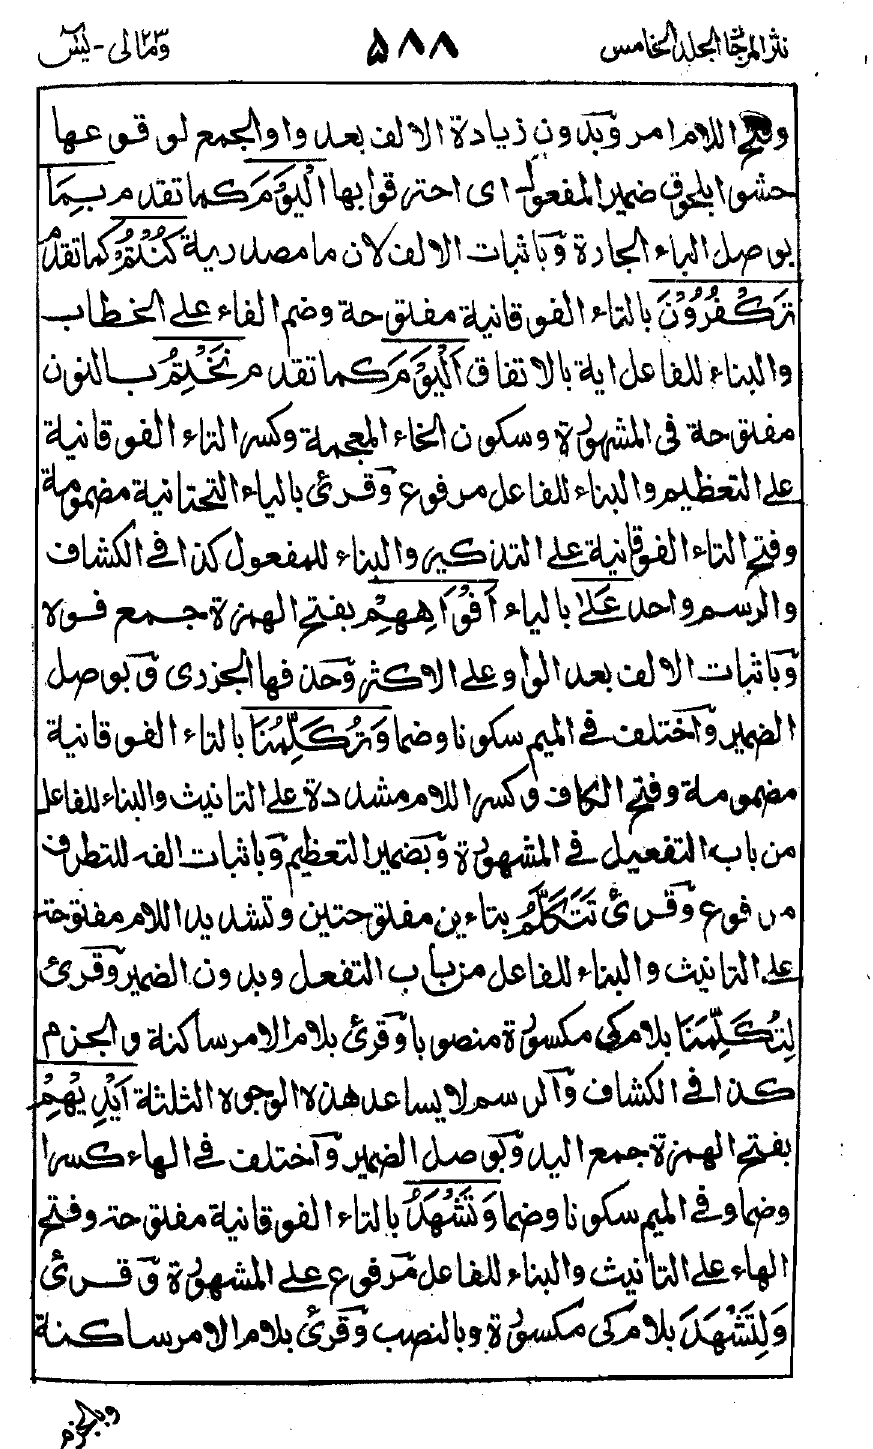 نثر المرجان المجلد الخامس ۵۸۸ ومالی ۲۳ - یٰسٓ
وفتح اللام امر وَبدون زيادة الالف بعد واو الجمع لوقوعها
حشوا بلحوق ضمير المفعول اى احترقوا بها اَلْيَوْمَ كما تقدم بِمَا
بوصل الباء الجارة وَباثبات الالف لان ما مصدرية كُنْتُمْ كما تقدم
تَكْفُرُوْنَ بالتاء الفوقانية مفتوحة وضم الفاء على الخطاب
والبناء للفاعل اية بالاتفاق اَلْيَوْمَ كما تقدم نَخْتِمُ بالنون
مفتوحة فى المشهورة وسكون الخاء المعجمة وكسر التاء الفوقانية
على التعظيم والبناء للفاعل مرفوع وَقرئ بالياء التحتانية مضمومة
وفتح التاء الفوقانية على التذكير والبناء للمفعول كذا فى الكشاف
والرسم واحد عَلٰى بالياء اَفْوَاهِهِمْ بفتح الهمزة جمع فوه
وَباثبات الالف بعد الواو على الاكثر وَحذفها الجزرى وَبوصل
الضمير وَاختلف فى الميم سكونا وضما وَتُكَلِّمُنَا بالتاء الفوقانية
مضمومة وفتح الكاف وَكسر اللام مشددة على التانيث والبناء للفاعل
من باب التفعيل فى المشهورة وَبضمير التعظيم وَباثبات الفه للتطرف
مرفوع وَقرئ تَتَكَلَّمُ بتاءين مفتوحتين وتشديد اللام مفتوحة
على التانيث والبناء للفاعل من باب التفعل وبدون الضمير وَقرئ
لِتُكَلِّمَنَا بلام كى مكسورة منصوبا وَقرئ بلام الامر ساكنة والجزم
كذا فى الكشاف وَالرسم لا يساعد هذه الوجوه الثلثة اَيْدِيْهِمْ
بفتح الهمزة جمع اليد وَبوصل الضمير وَاختلف فى الهاء كسرا
وضما وفى الميم سكونا وضما وَتَشْهَدُ بالتاء الفوقانية مفتوحة وفتح
الهاء على التانيث والبناء للفاعل مَرفوع على المشهورة وَقرئ
وَلِتَشْهَدَ بلام كى مكسورة وبالنصب وَقرئ بلام الامر ساكنة
وبالجزم